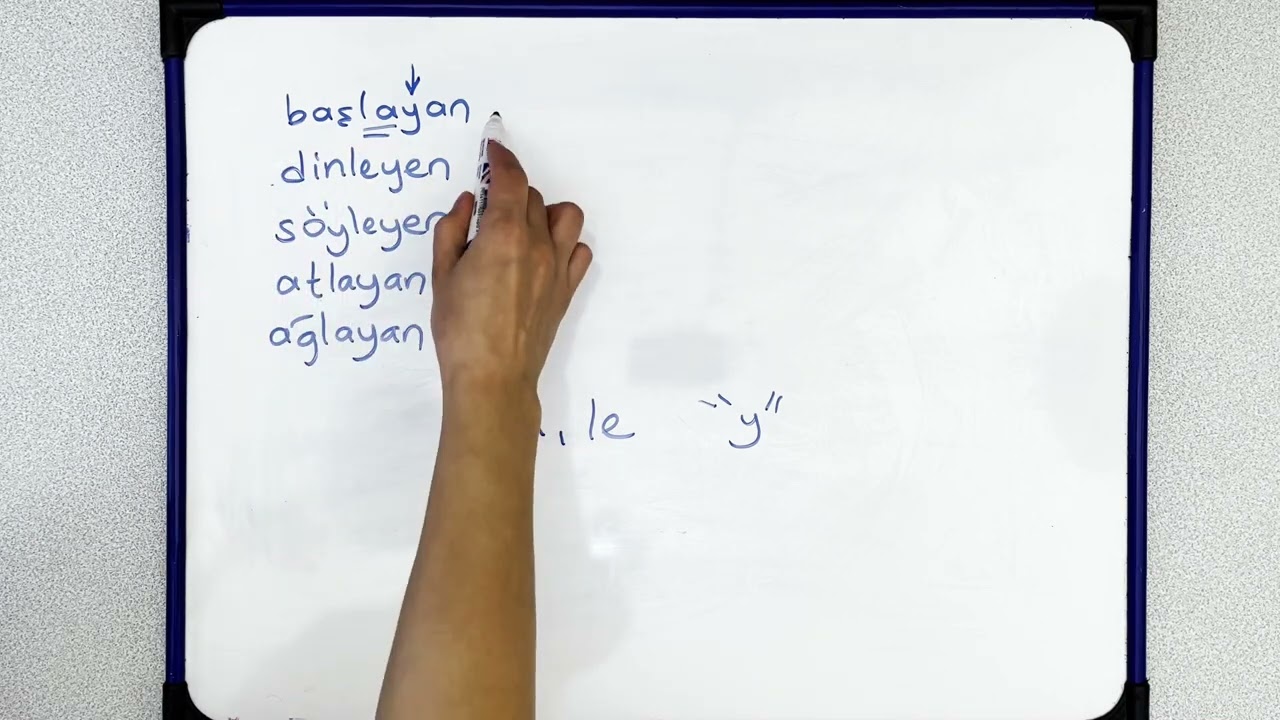 başlayan
dinleyen
söyleyen
atlayan
ağlayan
, le "y"